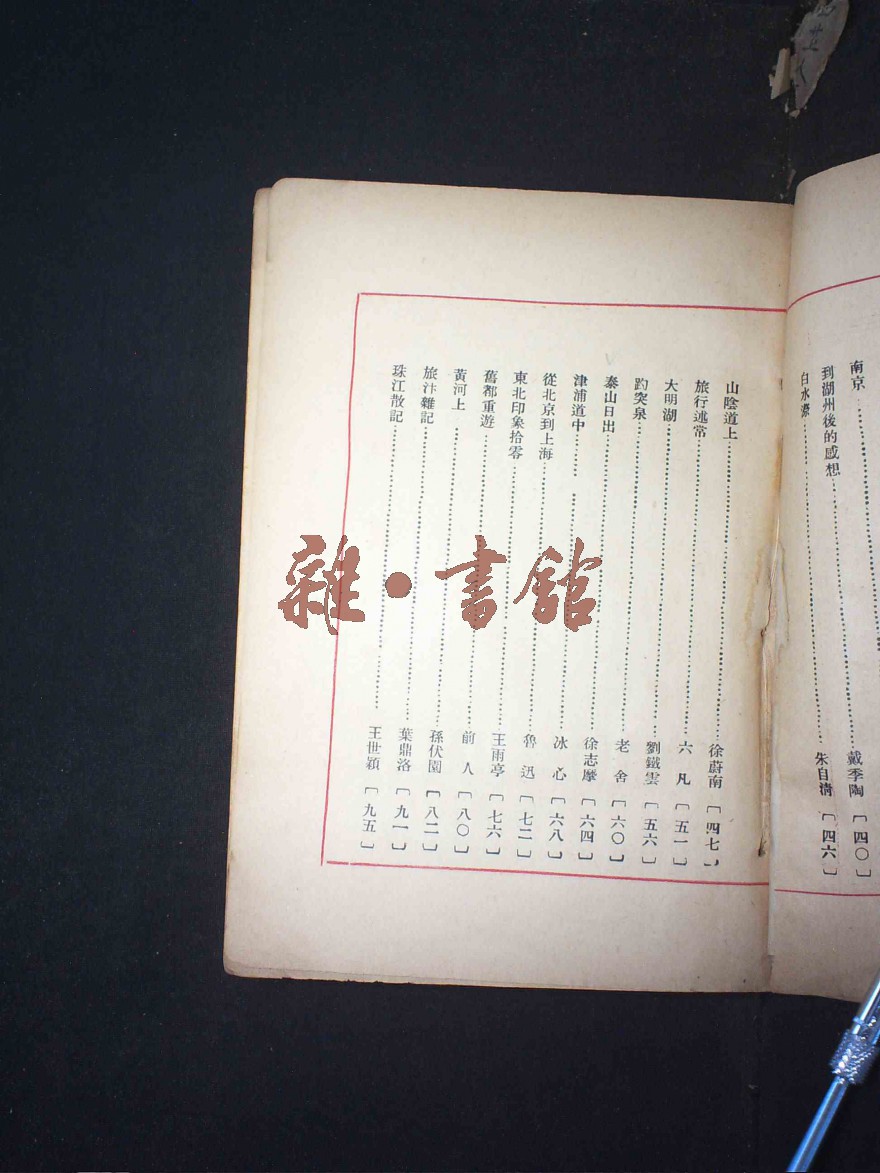 南京
到湖州後的感想……戴季陶〔四〇〕
白水漈……朱自清〔四六〕
山陰道上……徐蔚南〔四七〕
旅行述常……六凡〔五一〕
大明湖……劉鐵雲〔五六〕
趵突泉……老舍〔六〇〕
泰山日出……徐志摩〔六四〕
津浦道中……冰心〔六八〕
從北京到上海……魯迅〔七二〕
東北印象拾零……王雨亭〔七六〕
舊都重遊……前人〔八〇〕
黃河上……孫伏園〔八二〕
旅汴雜記……葉鼎洛〔九一〕
珠江散記……王世穎〔九五〕
雜·書館